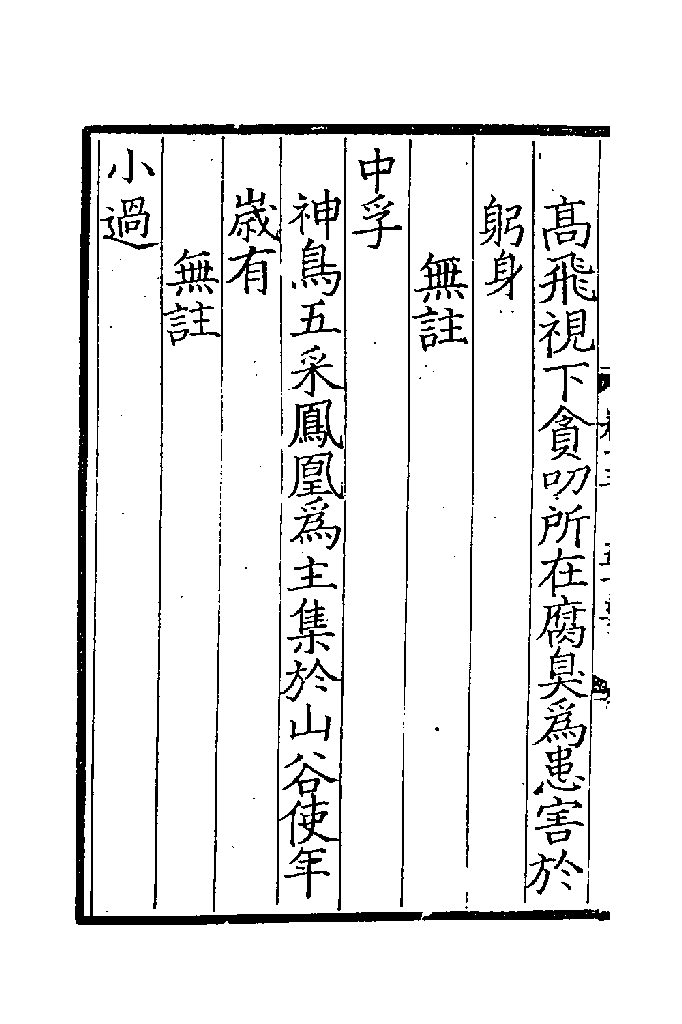 髙飛視下貪叨所在腐臭爲患害於
躬身
無註
中孚
神鳥五采鳳凰爲主集於山谷使年
嵗有
無註
小過